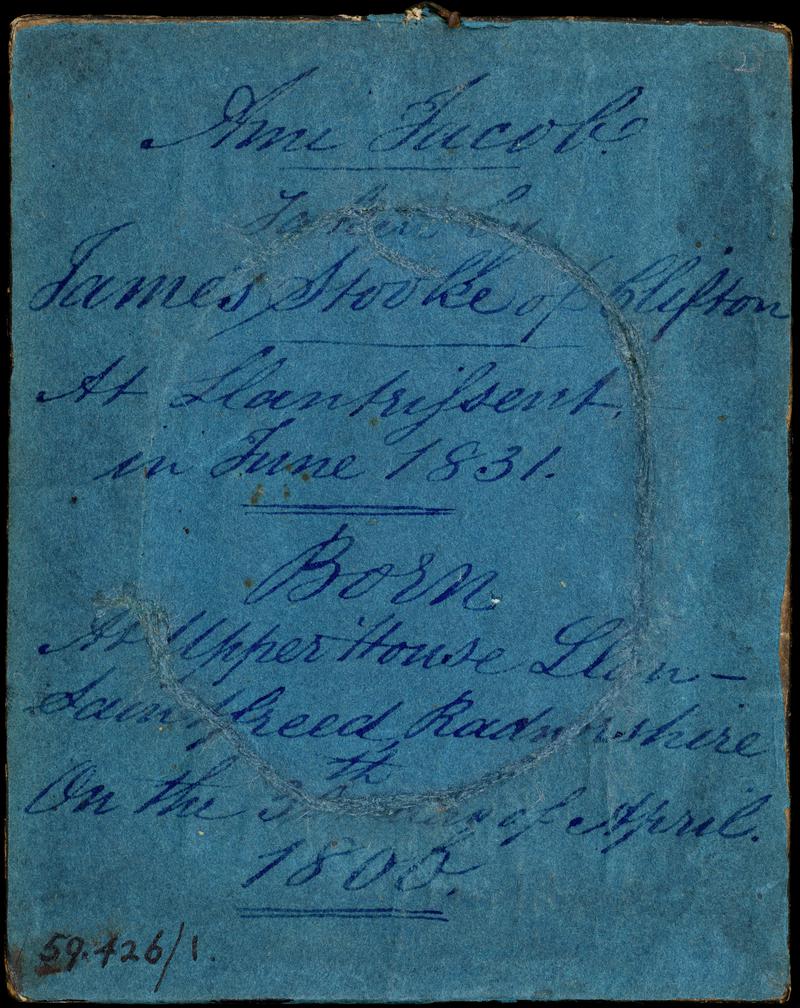 Ann Jacob.
Taken by
James Stooke of Clifton
At Llantrissent.
in June 1831.
Born
At Upper House Llan-
Saintfreed Radnorshire
On the th day of April.
59.426/1.